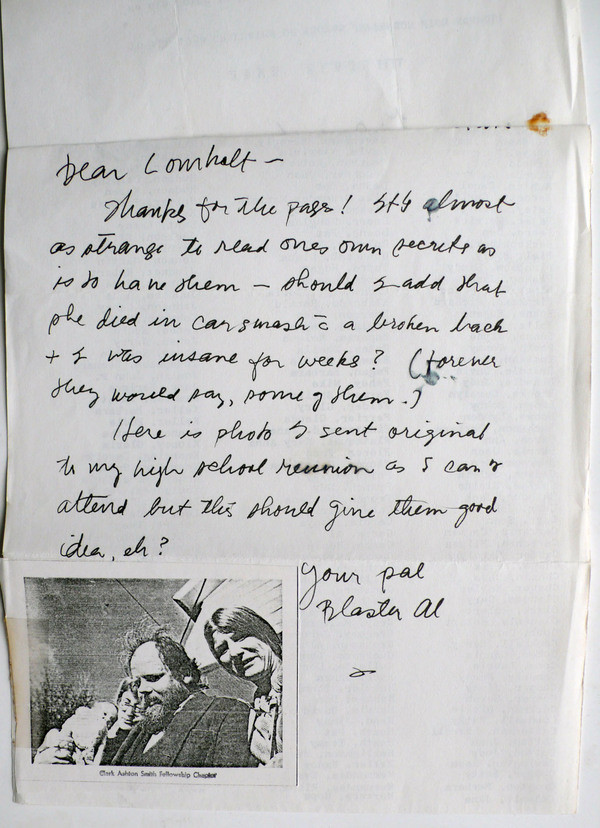 Dear Lomholt –
Thanks for the pages! It's almost
as strange to read ones own secrets as
is to have them – should I add that
she died in car smash c̄ a broken back
+ I was insane for weeks? (forever
they would say, some of them.)
Here is photo I sent original
to my high school reunion as I can't
attend but this should give them good
idea, eh?
Your pal
Blaster Al
Clark Ashton Smith Fellowship Chapter